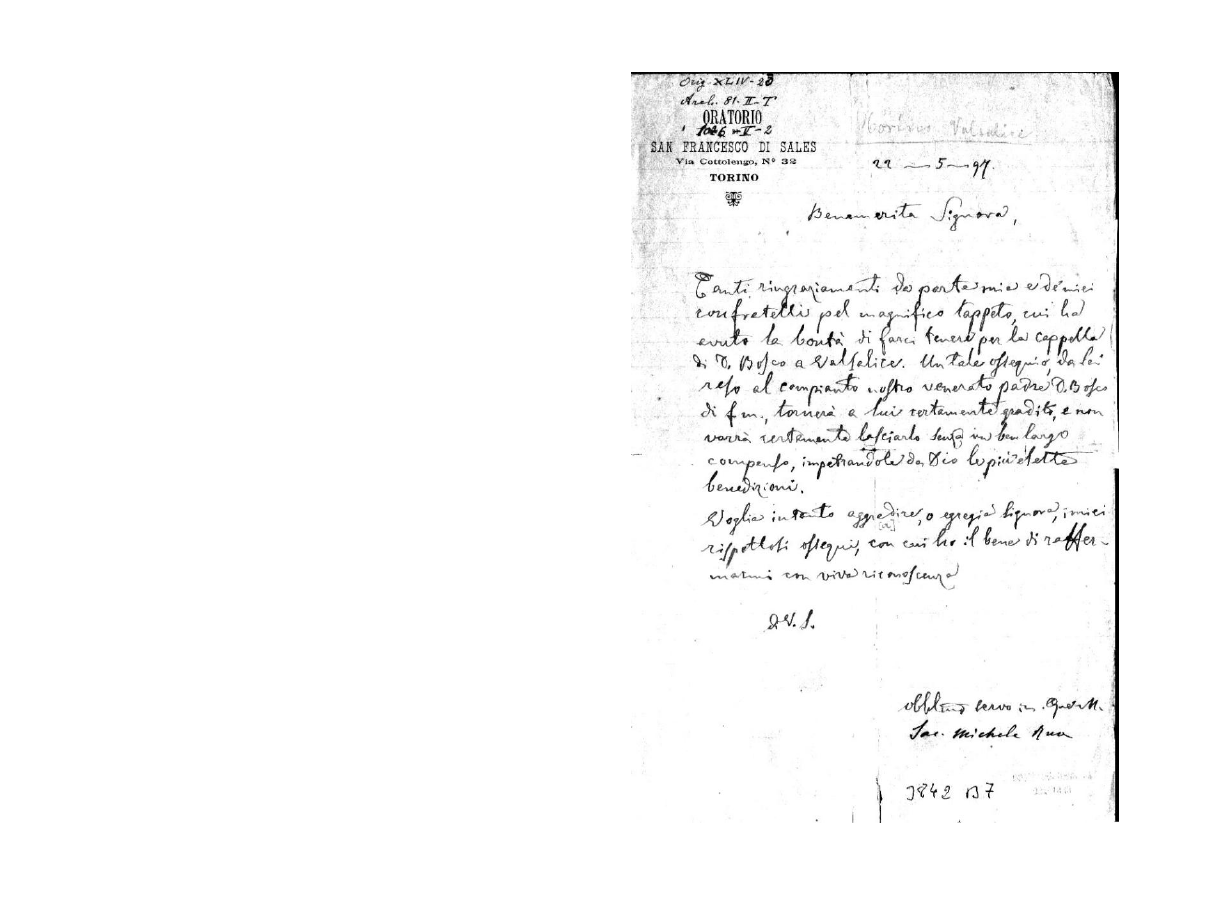 Orig. XLIV-20
Arch. 81. II-T
ORATORIO
1026 II-2
SAN FRANCESCO DI SALES
Via Cottolengo, Nº 32
TORINO
Torino Valsalice
22 — 5 — 97.
Benemerita Signora,
Tanti ringraziamenti da parte mia e de' miei
confratelli pel magnifico tappeto, cui ha
avuto la bontà di farci tenere per la cappella
di D. Bosco a Valsalice. Un tale ossequio, da lei
reso al compianto nostro venerato padre D. Bosco
di f m., tornerà a lui certamente gradito, e non
vorrà certamente lasciarlo senza un ben largo
compenso, impetrandole da Dio le più elette
benedizioni.
Voglia intanto aggradire, o egregia Signora, i miei
rispettosi ossequi, con cui ho il bene di raffer-
marmi con viva riconoscenza
D V. S.
obbl.mo servo in
Sac. Michele Rua
3842 B7